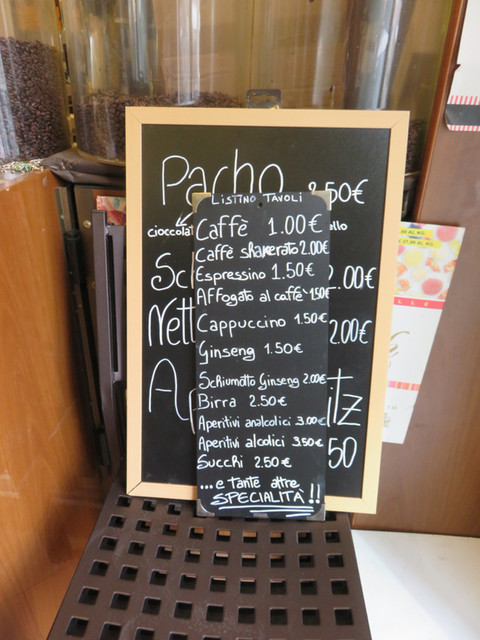 Pacho
2.50€
LISTINO TAVOLI
Caffè 1.00€
Caffè shakerato 2.00€
Espressino 1.50€
Affogato al caffè 1.50€
Cappuccino 1.50€
Ginseng 1.50€
Schiumotto Ginseng 2.00€
Birra 2.50€
Aperitivi analcolici 3.00€
Aperitivi alcolici 3.50€
Succhi 2.50€
...e tante altre
SPECIALITÀ!!
2.00€
2.00€